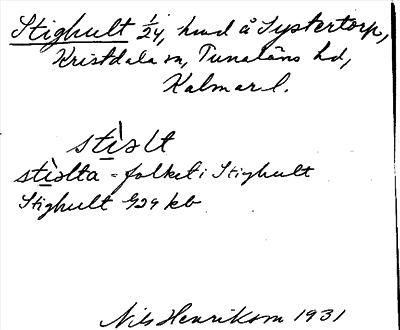 Stighult 1/24, hmd å Systertorp,
Kristdala sn, Tunaläns hd,
Kalmar l.
stìəlt
stìəlta = folket i Stighult
Stighult 1/729 kb
Nils Henrikson 1931